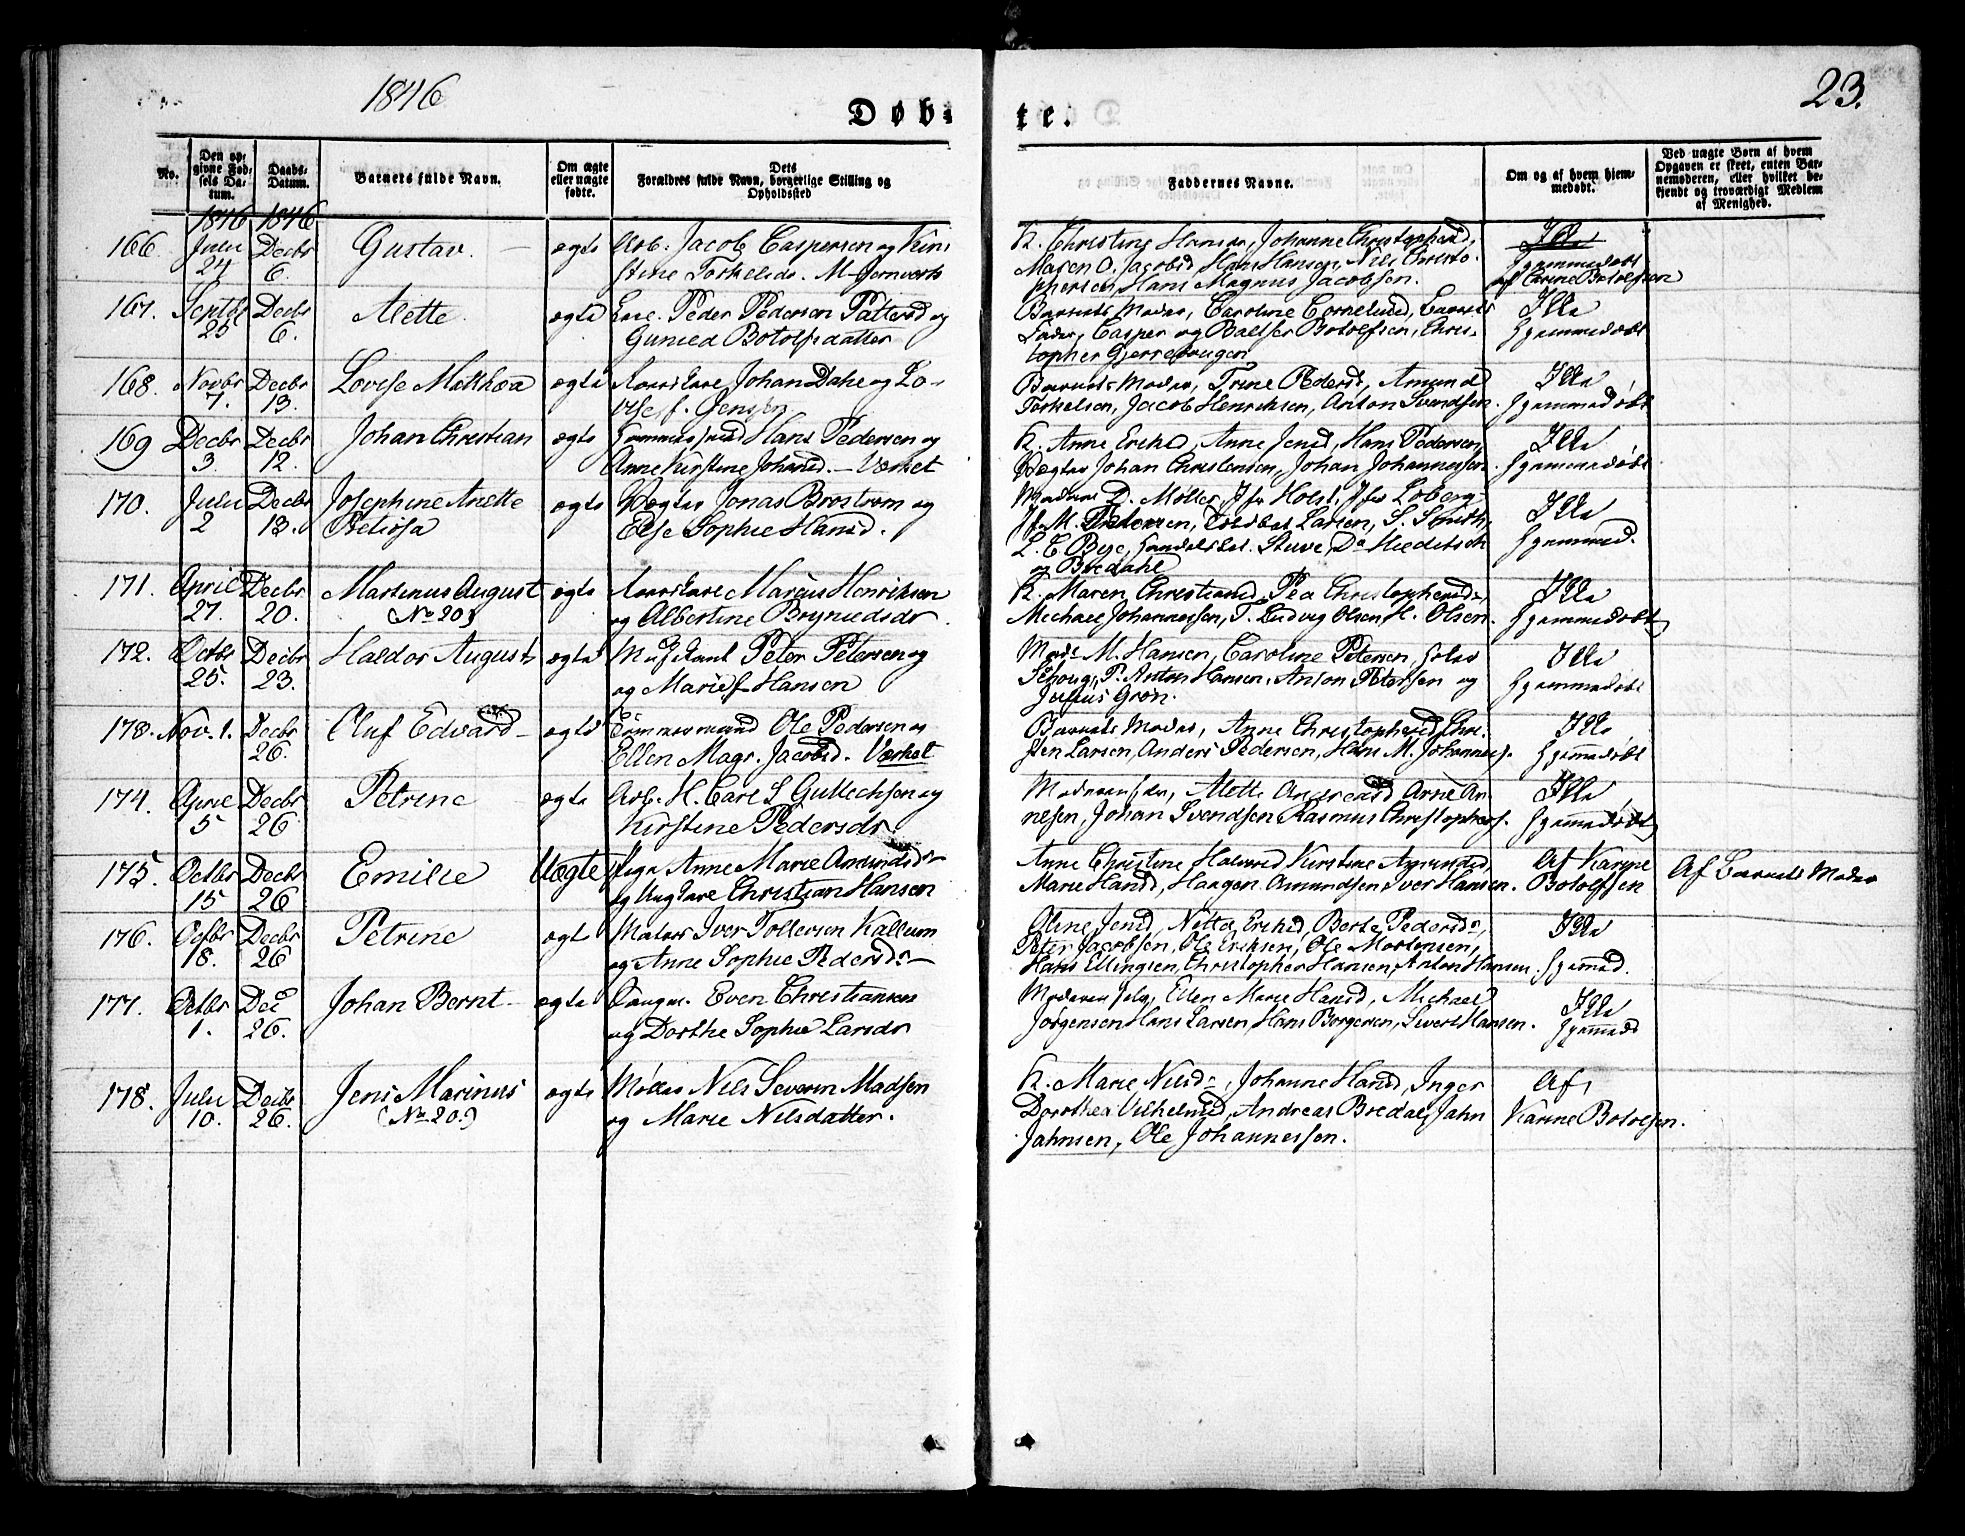 1846
Døb-
te.
23.
No.
Den op-
givne Fød-
sels Da-
tum.
Daabs-
Datum.
Barnets fulde Navn.
Om ægte
eller uægte
fødte.
Dets
Forældres fulde Navn, borgerlige Stilling og
Opholdssted
Faddernes Navne.
Om og af hvem hjem-
medøbt.
Ved uægte Børn af hvem
Opgaven er skeet, enten Bar-
nemoderen, eller hvilket be-
kjendt og troværdigt Medlem
af Menighed.
1846 1846
166. Juli 24 Decbr 6. Gustav. ægte Arb. Jacob Caspersen og Kir-
stine Torkelsd. M-Jernverk
K. Christine Hansen, Johanne Christophersd,
Maren O. Jacobsd Hans Hansen, Nils Christo-
phersen, Hans Magnus Jacobsen.
Hjemmedøbt
af Carine Botolfsen
167. Septbr 25 Decbr 6. Alette. ægte Peder Pedersen og
Gunild Botolfsdatter
Barnets Moder, Caroline Cornelusd, Barnets
Fader, Casper og Baltser Botolfsen, Chris-
topher Gjerrebougen
Ille
hjemmedøbt
168. Novbr 7. Decbr 13. Lovise Mathea ægte Johan Dahl og Lo-
vise f. Jensen
Barnets Moder, Trine Pedersd, Amund
Torkelsen, Jacob Henriksen, Anton Svendsen.
Ille
hjemmedøbt
169 Decbr 3. Decbr 12. Johan Christian ægte Hans Pedersen og
Anne Kirstine Johansd. - Værket
K. Anne Eriksd, Anne Jensd, Hans Pedersen,
Vægter Johan Christensen, Johan Johannessen.
Ille
hjemmedøbt
170. Juli 2 Decbr 13. Josephine Anette
Petrosa ægte Vægter Jonas Brostrøm og
Else Sophie Hansd.
Madame D. Møller, Jfr Holst, Jfr Loberg
Jfr M. Petersen, Larsen, S. Smith,
L. C. Bye, Handelsbet. Stuve, Do
og Bredahl
Ille
hjemmed.
171. April 27. Decbr 20. Martinus August
(No 20) ægte Marius Henriksen
og Albertine Brynildsdr.
K. Maren Christiansd, Pea Christophersd,
Michael Johannessen, T. Ludvig Olsen, H. Olsen.
Ille
hjemmedøbt
172. Octbr 25. Decbr 23. Haldor August ægte Musikant Peter Petersen og
og Marie f. Hansen
Mad. M. Hansen, Caroline Petersen,
Schoug, P. Anton Hansen, Anton Petersen og
Julius Grøn.
Ille
hjemmedøbt
173. Nov. 1. Decbr 26. Oluf Edvard - ægte Tømmermand Ole Pedersen og
Ellen Magr. Jacobsd. Værket
Barnets Moder, Anne Christophersd, Chri-
sten Larsen, Anders Pedersen, Hans M. Johannes.
Ille
hjemmedøbt
174. April 5 Decbr 26 Petrine ægte Arb. H. Carl L Gullechsen og
Kirstine Pedersdr.
Moderen selv, Alette Andreasd Arne An-
nesen, Johan Svendsen Rasmus Christophers.
Ille
hjemmedøbt
175. Octbr 15 Decbr 26 Emilie Uægte Pige Anne Marie Amundsd
og Ungkarl Christian Hansen
Anne Christine Halvorsd Kirstine Amundsd
Marie Hansd, Haagen Amundsen Iver Hansen.
Af Karine
Botolfsen
Af Barnets Moder
176. Octbr 18. Decbr 26 Petrine ægt Matros Iver Tollefsen Kallum
og Anne Sophie Pedersd -
Oline Jensd, Netta Eriksd, Berte Pedersd,
Peter Jacobsen, Ole Eriksen, Ole Mortensen,
Hans Ellingsen, Christopher Hansen, Anton Hansen.
Ille
hjemmed.
177. Octbr 1. Dec 26. Johan Bernt - ægte Even Christiansen
og Dorthe Sophie Larsdr
Moderen selv, Ellen Marie Hansd, Michael
Jørgensen Hans Larsen, Hans Borgersen, Sivert Hansen.
Ille
hjemmed
178. Juli 10. Decbr 26. Jens Marinus
(No 20.) ægte Møller Nils Severin Madsen
og Marie Nilsdatter.
K. Marie Nilsd, Johanne Hansd, Inger
Dorothea Vilhelmsd, Andreas Bredal, Jahn
Jahnsen, Ole Johannessen.
Af
Karine Botolfsen.